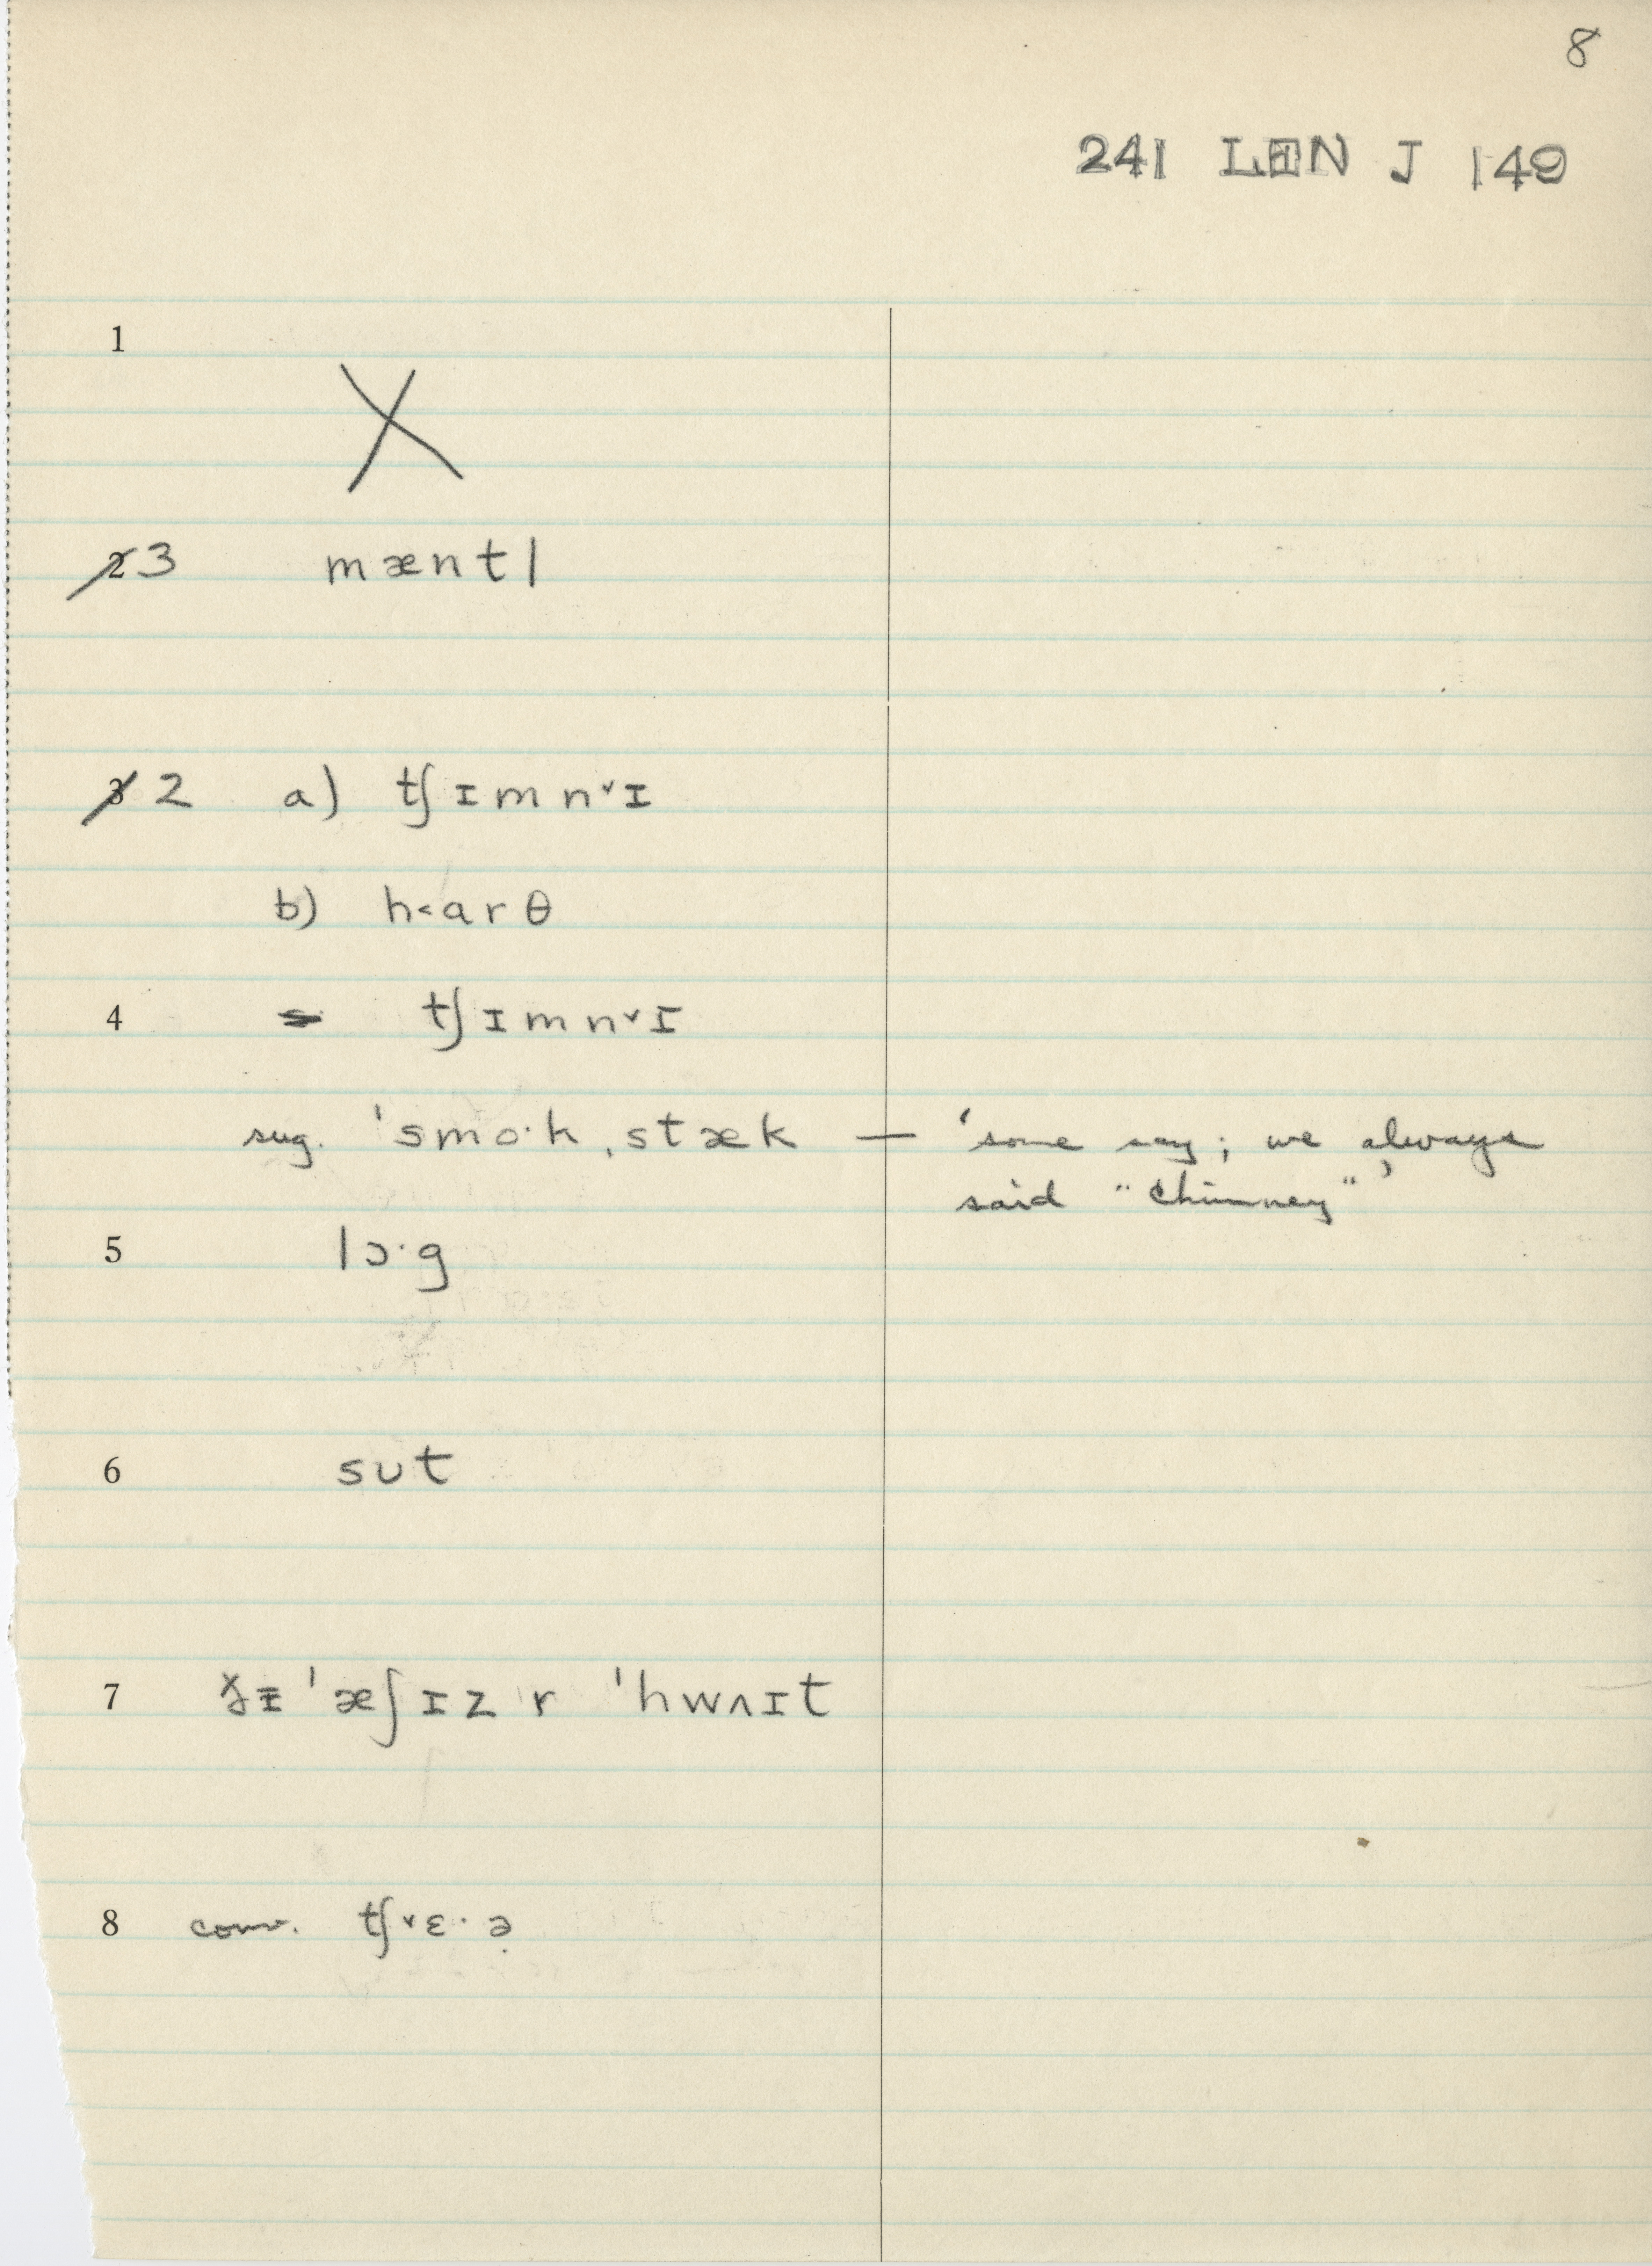 8
241 LAN J 149
1
X
2 3 mæntl
3 2 a) tʃɪmn˅ɪ
b) h˂arθ
4 tʃɪmn˅ɪ
sug. 'smo·k ˌstæk — 'some say; we always
said "chimney"'
5 lɔ·g
6 sʊt
7 ðɪ 'æʃɪz r 'hwʌɪt
8 conv. tʃ˅ɛ·ə̣